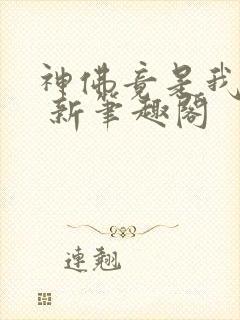 神佛竟是我
新笔趣阁
连翘